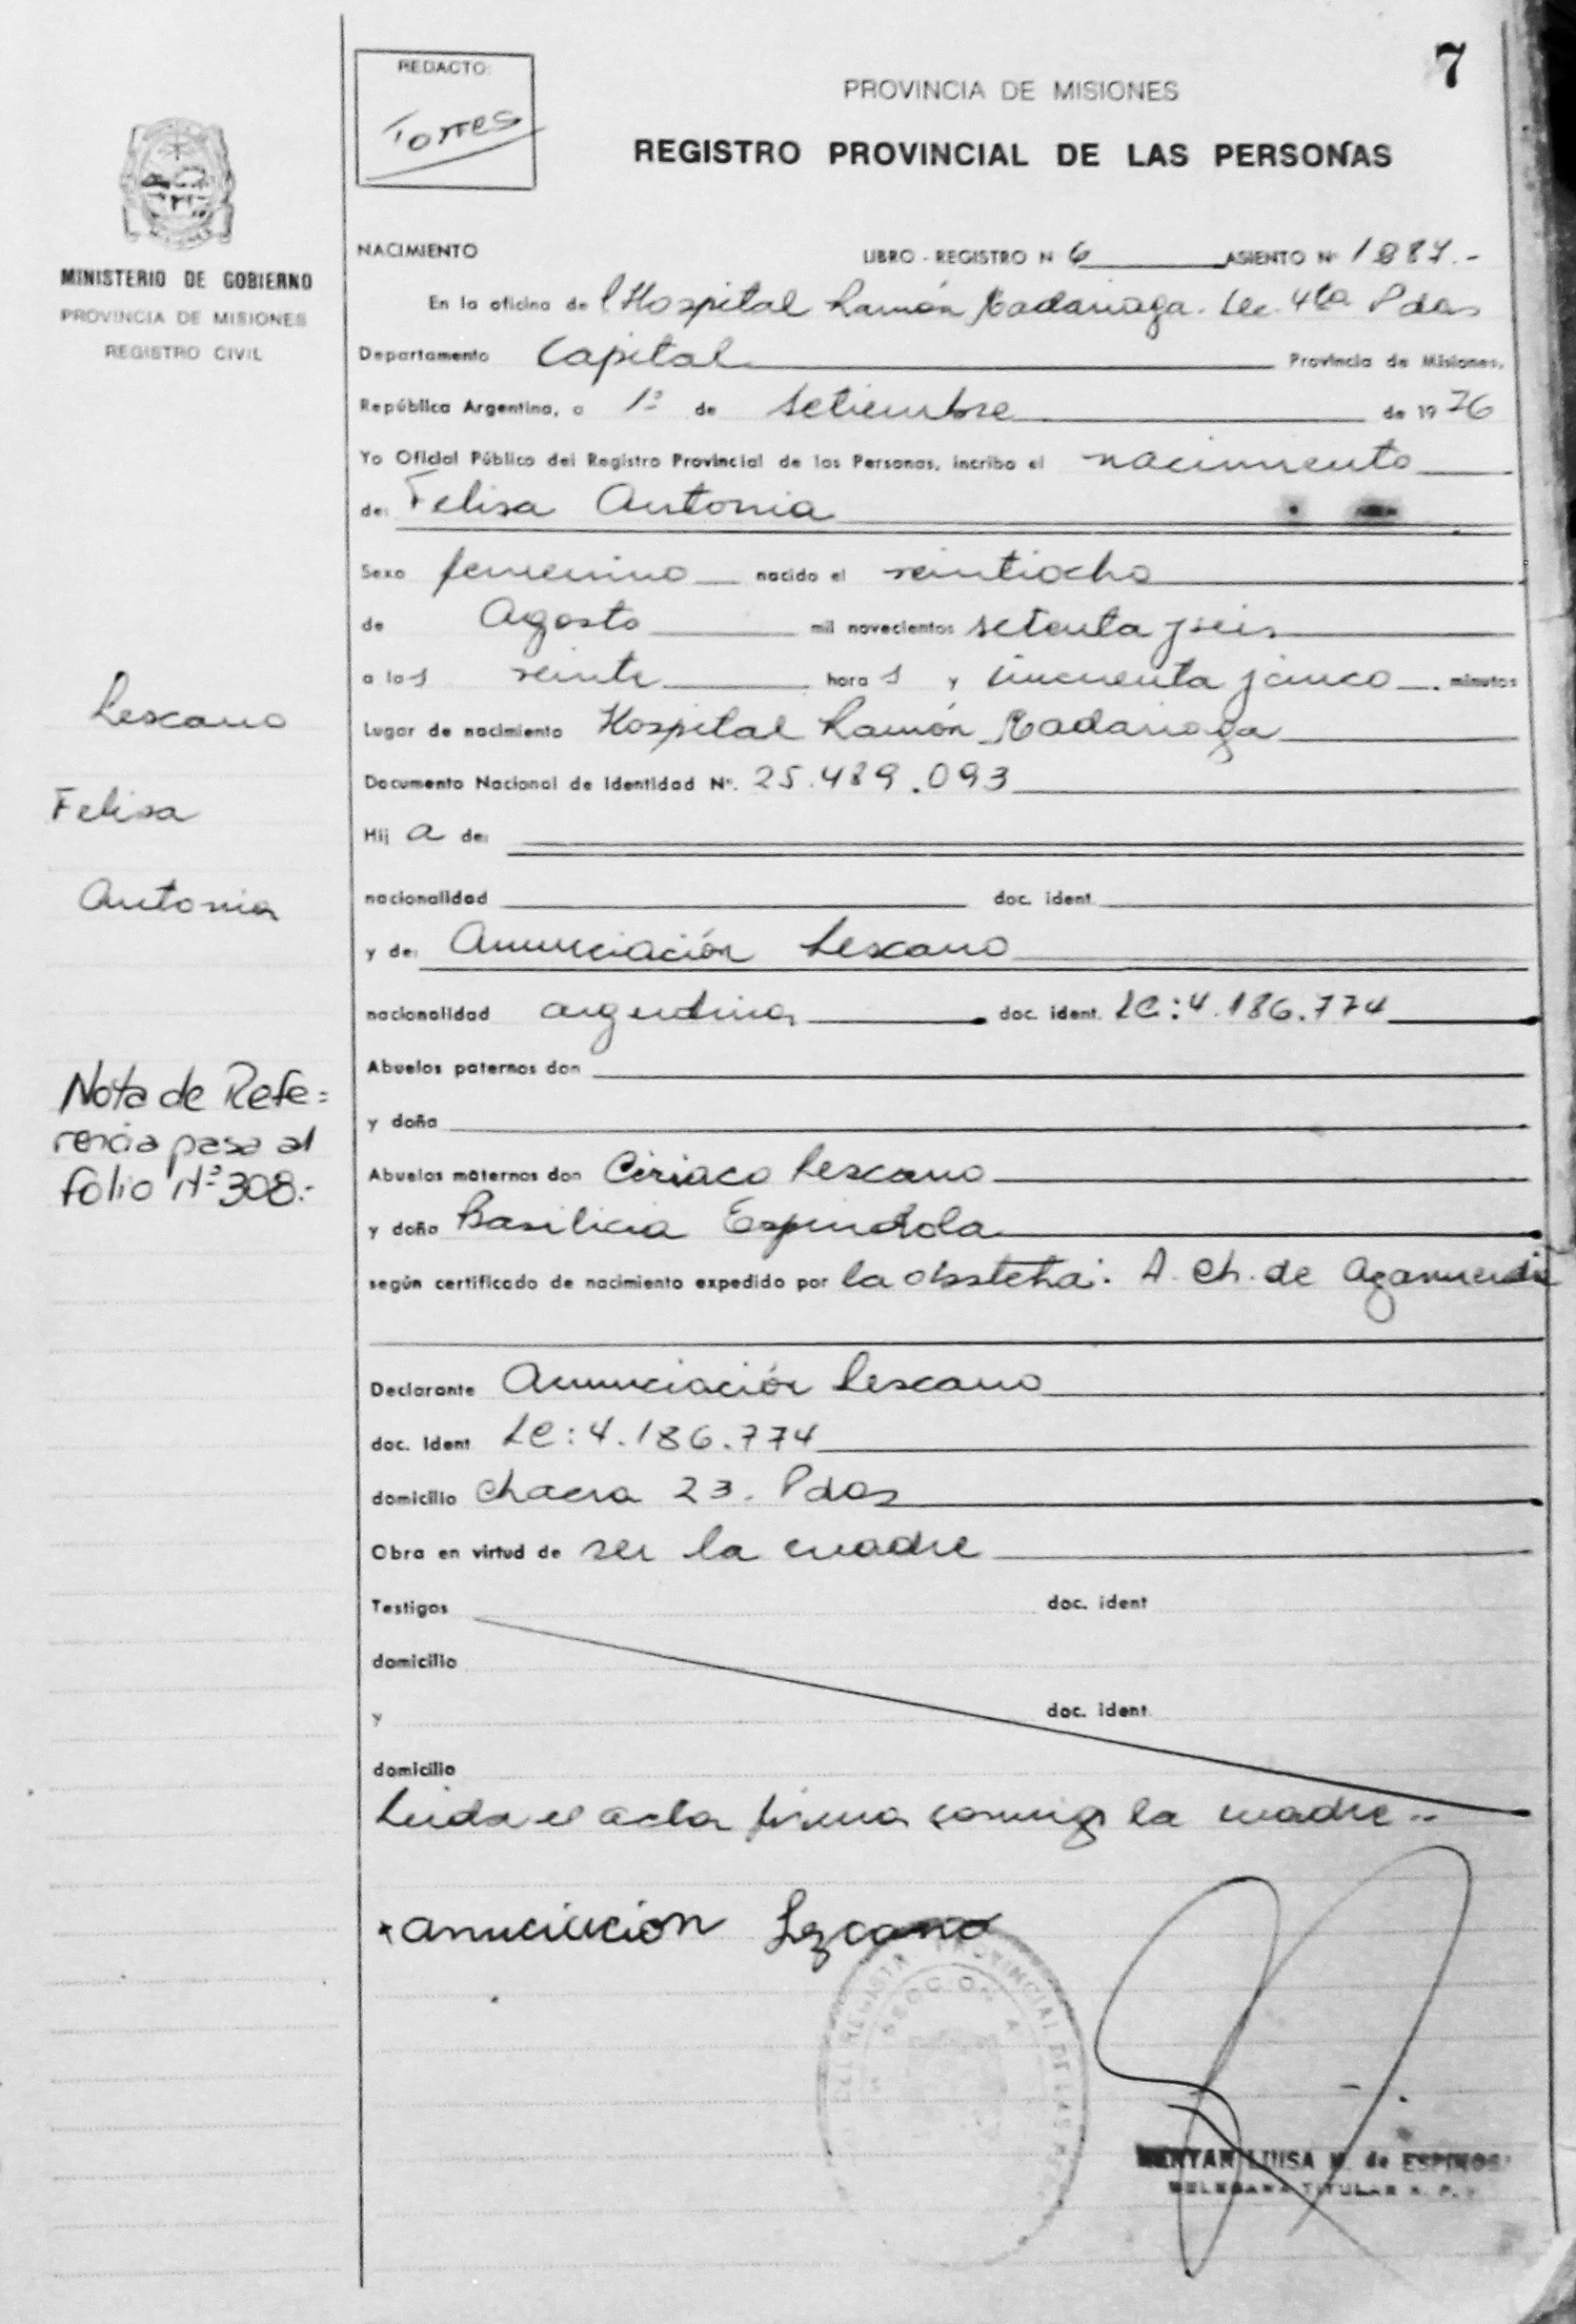 7
REDACTO:
Torres
PROVINCIA DE MISIONES
REGISTRO PROVINCIAL DE LAS PERSONAS
MINISTERIO DE GOBIERNO
PROVINCIA DE MISIONES
REGISTRO CIVIL
NACIMIENTO LIBRO - REGISTRO N 6 ASIENTO Nº 1887.-
En la oficina de l Hospital Ramón Madariaga. Sec. 4ta Pdas
Departamento Capital Provincia de Misiones,
República Argentina, a 1º de Setiembre de 1976
Yo Oficial Público del Registro Provincial de las Personas, incribo el nacimiento
de: Felisa Antonia
Sexo femenino nacido el veintiocho
de Agosto mil novecientos setenta y seis
a las veinte horas y cincuenta y cinco minutos
Lugar de nacimiento Hospital Ramón Madariaga
Documento Nacional de Identidad Nº. 25.489.093
Hij a de:
nacionalidad doc. ident.
y de: Anunciación Lescano
nacionalidad argentina doc. ident. LC: 4.186.774
Abuelos paternos don
y doña
Abuelos maternos don Ciriaco Lescano
y doña Basilicia Espindola
según certificado de nacimiento expedido por la obsteta: A. Ch. de
Declarante Anunciación Lescano
doc. Ident LC: 4.186.774
domicilio Chacra 23. Pdas
Obra en virtud de ser la madre
Testigos doc. ident
domicilio
y doc. ident.
domicilio
Leida el acta firma conmigo la madre..
anuciucion Lezcano
Lescano
Felisa
Antonia
Nota de Refe=
rencia pasa al
folio Nº 308.-
DEL REGISTRO PROVINCIAL DE LAS
SECCION 4
LUISA M. de ESPINOSA
DELEGADA TITULAR R. P.